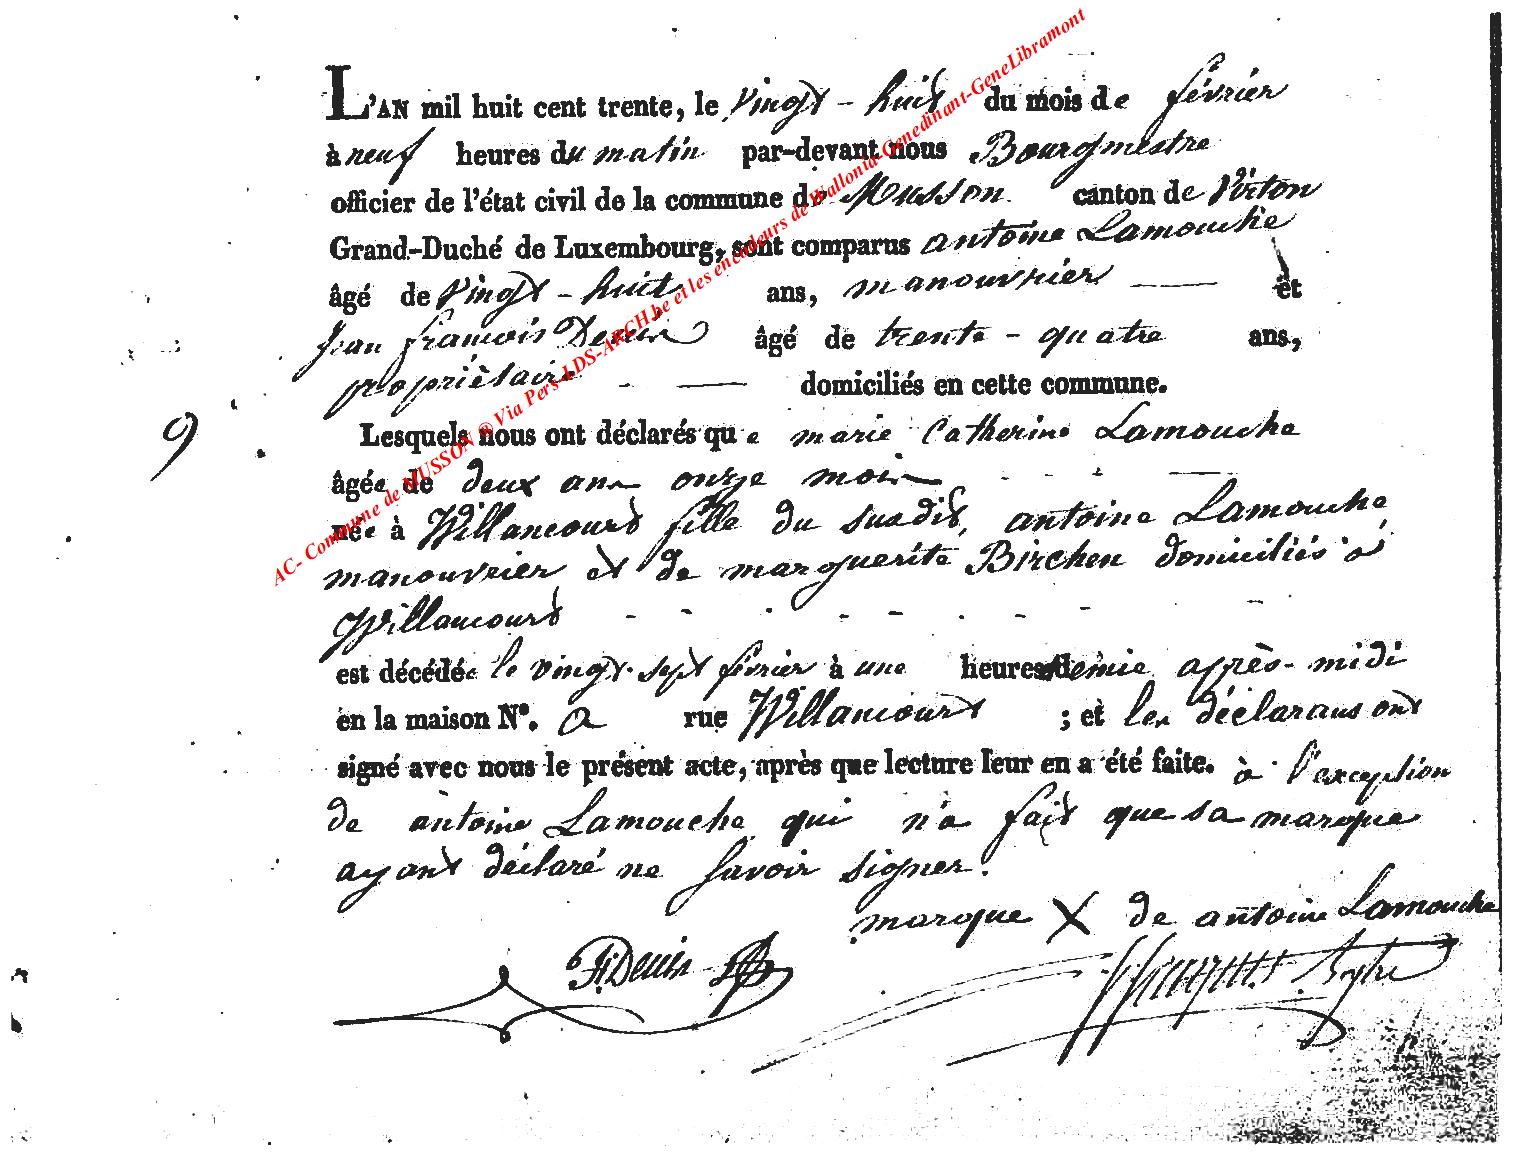 L'AN mil huit cent trente, le vingt-huit du mois de février
à neuf heures du matin par-devant nous Bourgmestre
officier de l'état civil de la commune de Musson canton de Virton
Grand-Duché de Luxembourg, sont comparus antoine Lamouche
âgé de vingt-huit ans, manouvrier et
Jean françois Denis âgé de trente-quatre ans,
propriètaire domiciliés en cette commune.
Lesquels nous ont déclarés que marie Catherine Lamouche
âgée de deux ans onze mois
née à Willancourt fille du susdit, antoine Lamouche
manouvrier et de marguerite Birchen domiciliés à
Willancourt
est décédée le vingt-sept février à une heures demie après-midi
en la maison N°. a rue Willancourt ; et les déclarans ont
signé avec nous le présent acte, après que lecture leur en a été faite. à l'exception
de antoine Lamouche qui n'a fait que sa marque
ayant déclaré ne savoir signer.
marque X de antoine Lamouche
Denis
9
AC- Commune de MUSSON ® Via Pers-LDS-ARCH.be et les encodeurs de Wallonia-Genedinant-GeneLibramont